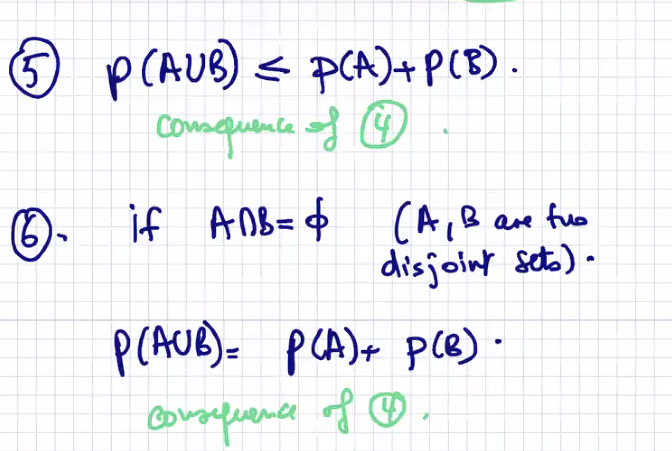 ⑤ P(A∪B) ≤ P(A)+P(B).
consequence of ④.
⑥. if A∩B=ϕ (A, B are two
disjoint sets).
P(A∪B)= P(A)+ P(B).
consequence of ④.